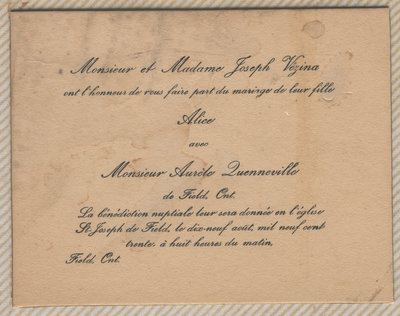 Monsieur et Madame Joseph Vézina
ont l'honneur de vous faire part du mariage de leur fille
Alice
avec
Monsieur Aurèle Quenneville
de Field, Ont.
La bénédiction nuptiale leur sera donnée en l'église
St-Joseph de Field, le dix-neuf août, mil neuf cent
trente, à huit heures du matin.
Field, Ont.